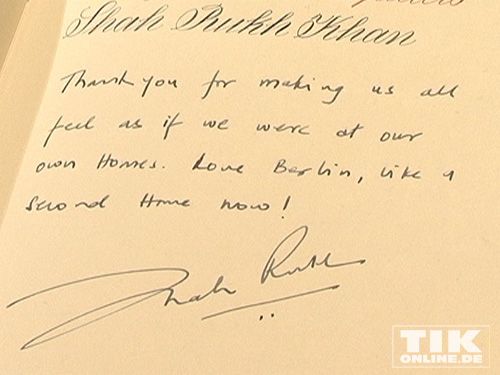 Shah Rukh Khan
Thank you for making us all
feel as if we were at our
own Homes. Love Berlin, like a
second Home now!
Shah Rukh
TIK
ONLINE.DE